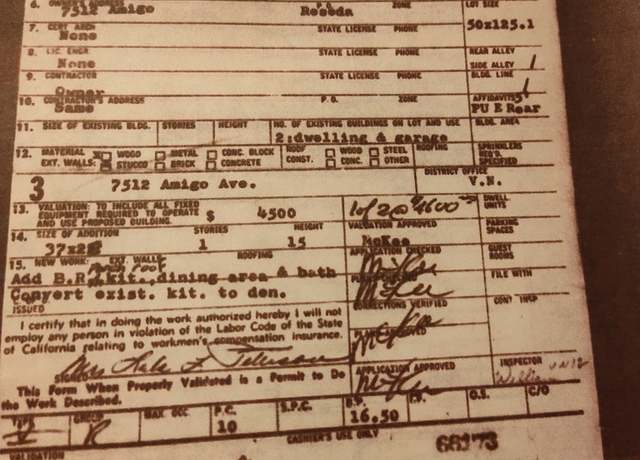 6. OWNER'S ADDRESS P.O. ZONE LOT SIZE
7512 Amigo Reseda
7. CERT. ARCH STATE LICENSE PHONE 50x125.1
None
8. LIC. ENGR. STATE LICENSE PHONE REAR ALLEY
None SIDE ALLEY
9. CONTRACTOR STATE LICENSE PHONE BLDG. LINE
Owner
10. CONTRACTOR'S ADDRESS P.O. ZONE AFFIDAVITS
Same PU E Rear
11. SIZE OF EXISTING BLDG. STORIES HEIGHT NO. OF EXISTING BUILDINGS ON LOT AND USE BLDG. AREA
2:dwelling & garage
12. MATERIAL WOOD METAL CONC. BLOCK ROOF WOOD STEEL ROOFING SPRINKLERS
EXT. WALLS: STUCCO BRICK CONCRETE CONST. CONC. OTHER REQ'D. SPECIFIED
3 7512 Amigo Ave. DISTRICT OFFICE V.N.
13. VALUATION: TO INCLUDE ALL FIXED
EQUIPMENT REQUIRED TO OPERATE
AND USE PROPOSED BUILDING. $ 4500 DWELL UNITS
VALUATION APPROVED PARKING SPACES
14. SIZE OF ADDITION STORIES HEIGHT McKee
1 15 APPLICATION CHECKED GUEST ROOMS
15. NEW WORK: EXT. WALLS ROOFING
Add B.R., kit., dining area & bath FILE WITH
Convert exist. kit. to den. CORRECTIONS VERIFIED CONT INSP
ISSUED
I certify that in doing the work authorized hereby I will not
employ any person in violation of the Labor Code of the State
of California relating to workmen's compensation insurance.
SIGNED APPLICATION APPROVED INSPECTOR
This Form When Properly Validated is a Permit to Do
the Work Described.
TYPE GROUP MAX. OCC. P.C. S.P.C. B.P. I.F. O.S. C/O
V R 10 16.50
CASHIER'S USE ONLY 66173
VALIDATION